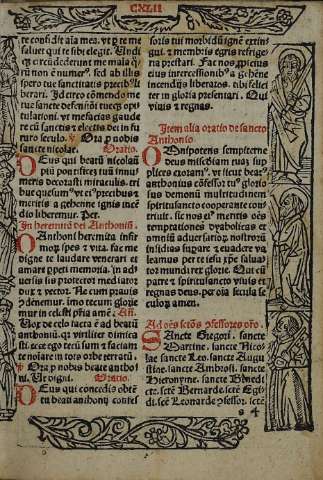 CXLII
te confidit aīa mea. vt p te me
saluer qui te sibi elegit. Vndi
qȝ circūdederunt me mala q̄
rū non ē numerꝰ. sed ab illis
spero tue sanctitatis precibꝰ li
berari. Id circo cōmendo me
tue sancte defensiōi tueqȝ opi
tulationi. vt mefacias gaude
re cū sanctis et electis dei in fu
turo seculo. Ora p nobis
sancte nicolae. Oratio.
Deus qui beatū nicolaū
piū pontificē tuū innu
meris decorasti miraculis. tri
bue quesumꝰ vt eiꝰ precibus et
meritis a gehenne ignis incē
dio liberemur. Per.
In heremita dei Anthonii.
Anthoni heremita infir
moꝝ spes et vita. fac me
digne te laudare venerari et
amare
uersis sis protector mediator
dux et victor. Hac cum prauis
cōdēnemur. imo tecum glorie
mur in celesti pr̄ia amē. Añ.
Vox de celo facta ē ad beatū
anthoniū. qꝫ viriliter dimica
sti. ecce ego tecū sum et faciam
te noīare in toto orbe terraꝝ.
Ora p nobis beate anthoni
ni. Vt digni. Oratio.
Deus qui concedis obtē
tu beati anthonij confes
soris tui morbidū ignē extin
gui. et membris egris refrige
ria prestari. Fac nos ppicius
eius intercessiōibꝰ a gehēne
incendiis liberatos. tibi felici
ter in gloria presentari. Qui
viuis et regnas.
Item alia oratio de sancto
Anthonio.
Omnipotens sempiterne
deus misericordiam tuā sup
plices exoramꝰ. vt sicut beatꝰ
anthoniꝰ cōfessor tuꝰ glorio
sus demonū multitudinem
spiritusancto cooperante con
triuit. sic nos eiꝰ meritis oēs
temptationes dyabolicas et
omniū aduersarioꝝ nostroꝝ
insidias supare et euadere va
leamus. per te iesu xp̄e salua
tor mundi rex glorie. Qui cū
patre et spiritusancto viuis et
regnas deus. per oīa secula se
culoꝝ amen.
Ad oēs sctōs ꝯfessores orō.
Sancte Gregori. sancte
Martine. sancte Nicol
ae sancte Leo. sancte Augu
stine. sancte Ambrosi. sancte
Hieronyme. sancte Bñedi
cte. scte Bernarde. scte Egi
di. scte Leonarde ꝯfessor. sctē
s 4